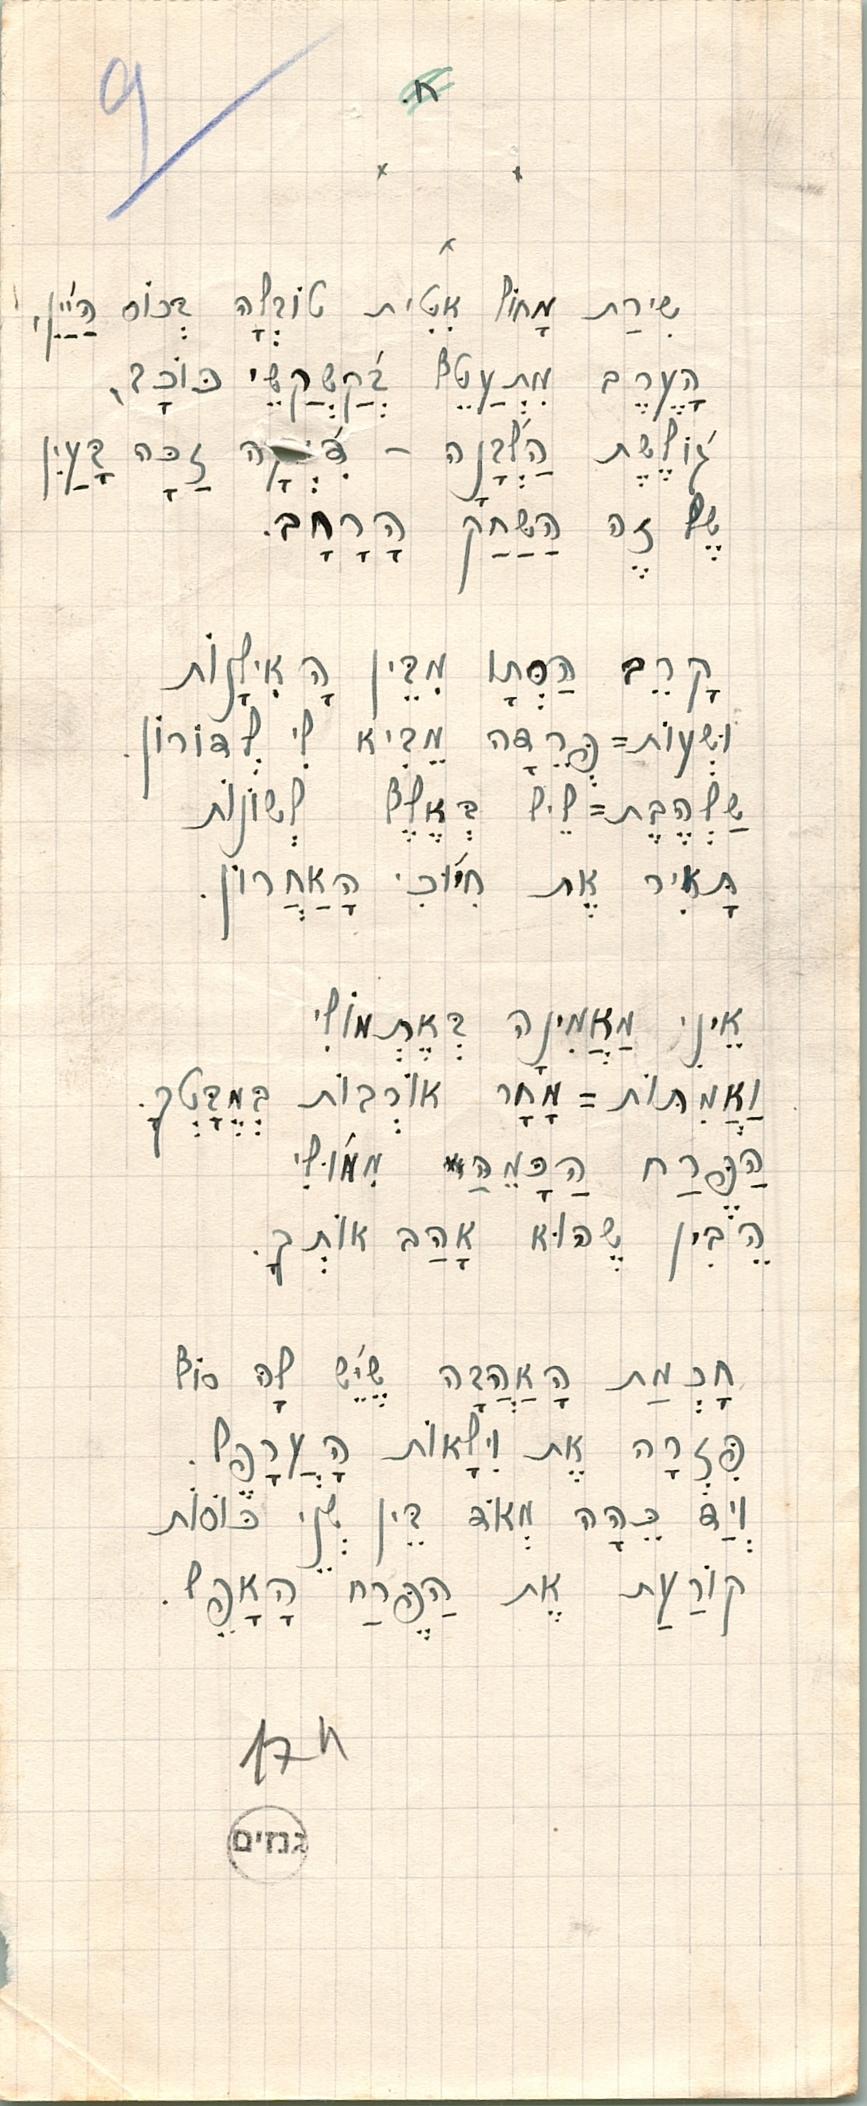 9
א.
x x
x
שִׁירַת מָחוֹל אִטִּית טוֹבְלָה בְּכוֹס הַיַּיִן,
הָעֶרֶב מִתְעַטֵּף בְּקַשְׂקַשֵּׂי כּוֹכָב,
גּוֹלֶשֶׁת הַלְּבָנָה – זַכָּה בָּעַיִן
שֶׁל זֶה הַשַּׁחַק הָרָחָב.
קָרֵב הַסְּתָו מִבֵּין הָאִילָנוֹת
וּשְׁעוֹת=פְּרֵדָה מֵבִיא לִי לְדוֹרוֹן.
שַׁלְהֶבֶת=לֵיל בְּאֶלֶף לְשׁוֹנוֹת
תָּאִיר אֶת חִיּוּכִי הָאַחֲרוֹן.
אֵינֶנִּי מַאֲמִינָה בְּאֶתְמוֹלִי
וַאֲמִתּוֹת=מָחָר אוֹרְבוֹת בְּמֶבָּטְךָ.
הַפֶּרַח הַכָּמֵהַּ מִמּוּלִי
הֵבִין שֶׁהוּא אָהַב אוֹתְךָ.
חָכְמַת הָאַהֲבָה שֶׁיֵּשׁ לָהּ סוֹף
פִּזְּרָה אֶת וִילָאוֹת הָעֲרָפֶל.
וְיַד כֵּהָה מְאֹד בֵּין שְׁנֵי כּוֹסוֹת
קוֹרַעַת אֶת הַפֶּרַח הָאָפֵל.
גנזים